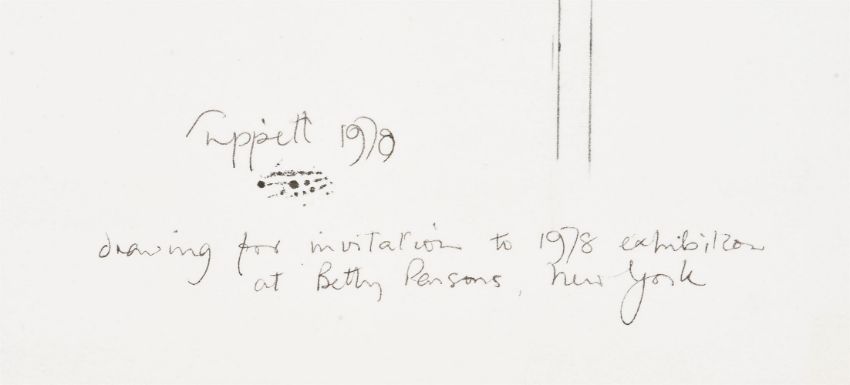 Tuppett 1978
drawing for invitation to 1978 exhibition
at Betty Parsons, New York